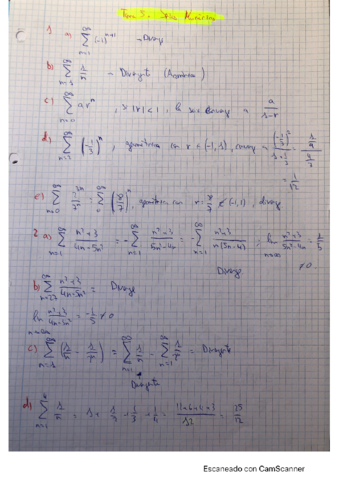 Tema 5. Series Numéricas
1 a) ∑_{n=1}^∞ (-1)^{n+1} → Diverg
b) ∑_{n=1}^∞ 1/n → Divergente (Armónica)
c) ∑_{n=0}^∞ a r^n, si |r| < 1, la serie converg a a/(1-r)
d) ∑_{n=2}^∞ (-1/3)^n, geométrica con r ∈ (-1,1), converg a (-1/3)^2/(1+1/3) = (1/9)/(4/3)
= 1/12
e) geométrica con ∉ (-1,1), diverg.
2 a) ∑_{n=1}^∞ (n²+3)/(4n-5n²) = -∑_{n=1}^∞ (n²+3)/(5n²-4n) = -∑_{n=1}^∞ (n²+3)/(n(5n-4)) = lim_{n→∞} (n²+3)/(5n²-4n) = 1/5
Diverg ≠0
b) (n²+3)/(4n-5n²) = Diverge
lim (n²+3)/(4n-5n²) = -1/5 ≠ 0
c) = Divergente
Divergente
d) ∑_{n=1}^4 1/n = 1 + 1/2 + 1/3 + 1/4 = (12+6+4+3)/12 = 25/12
Escaneado con CamScanner